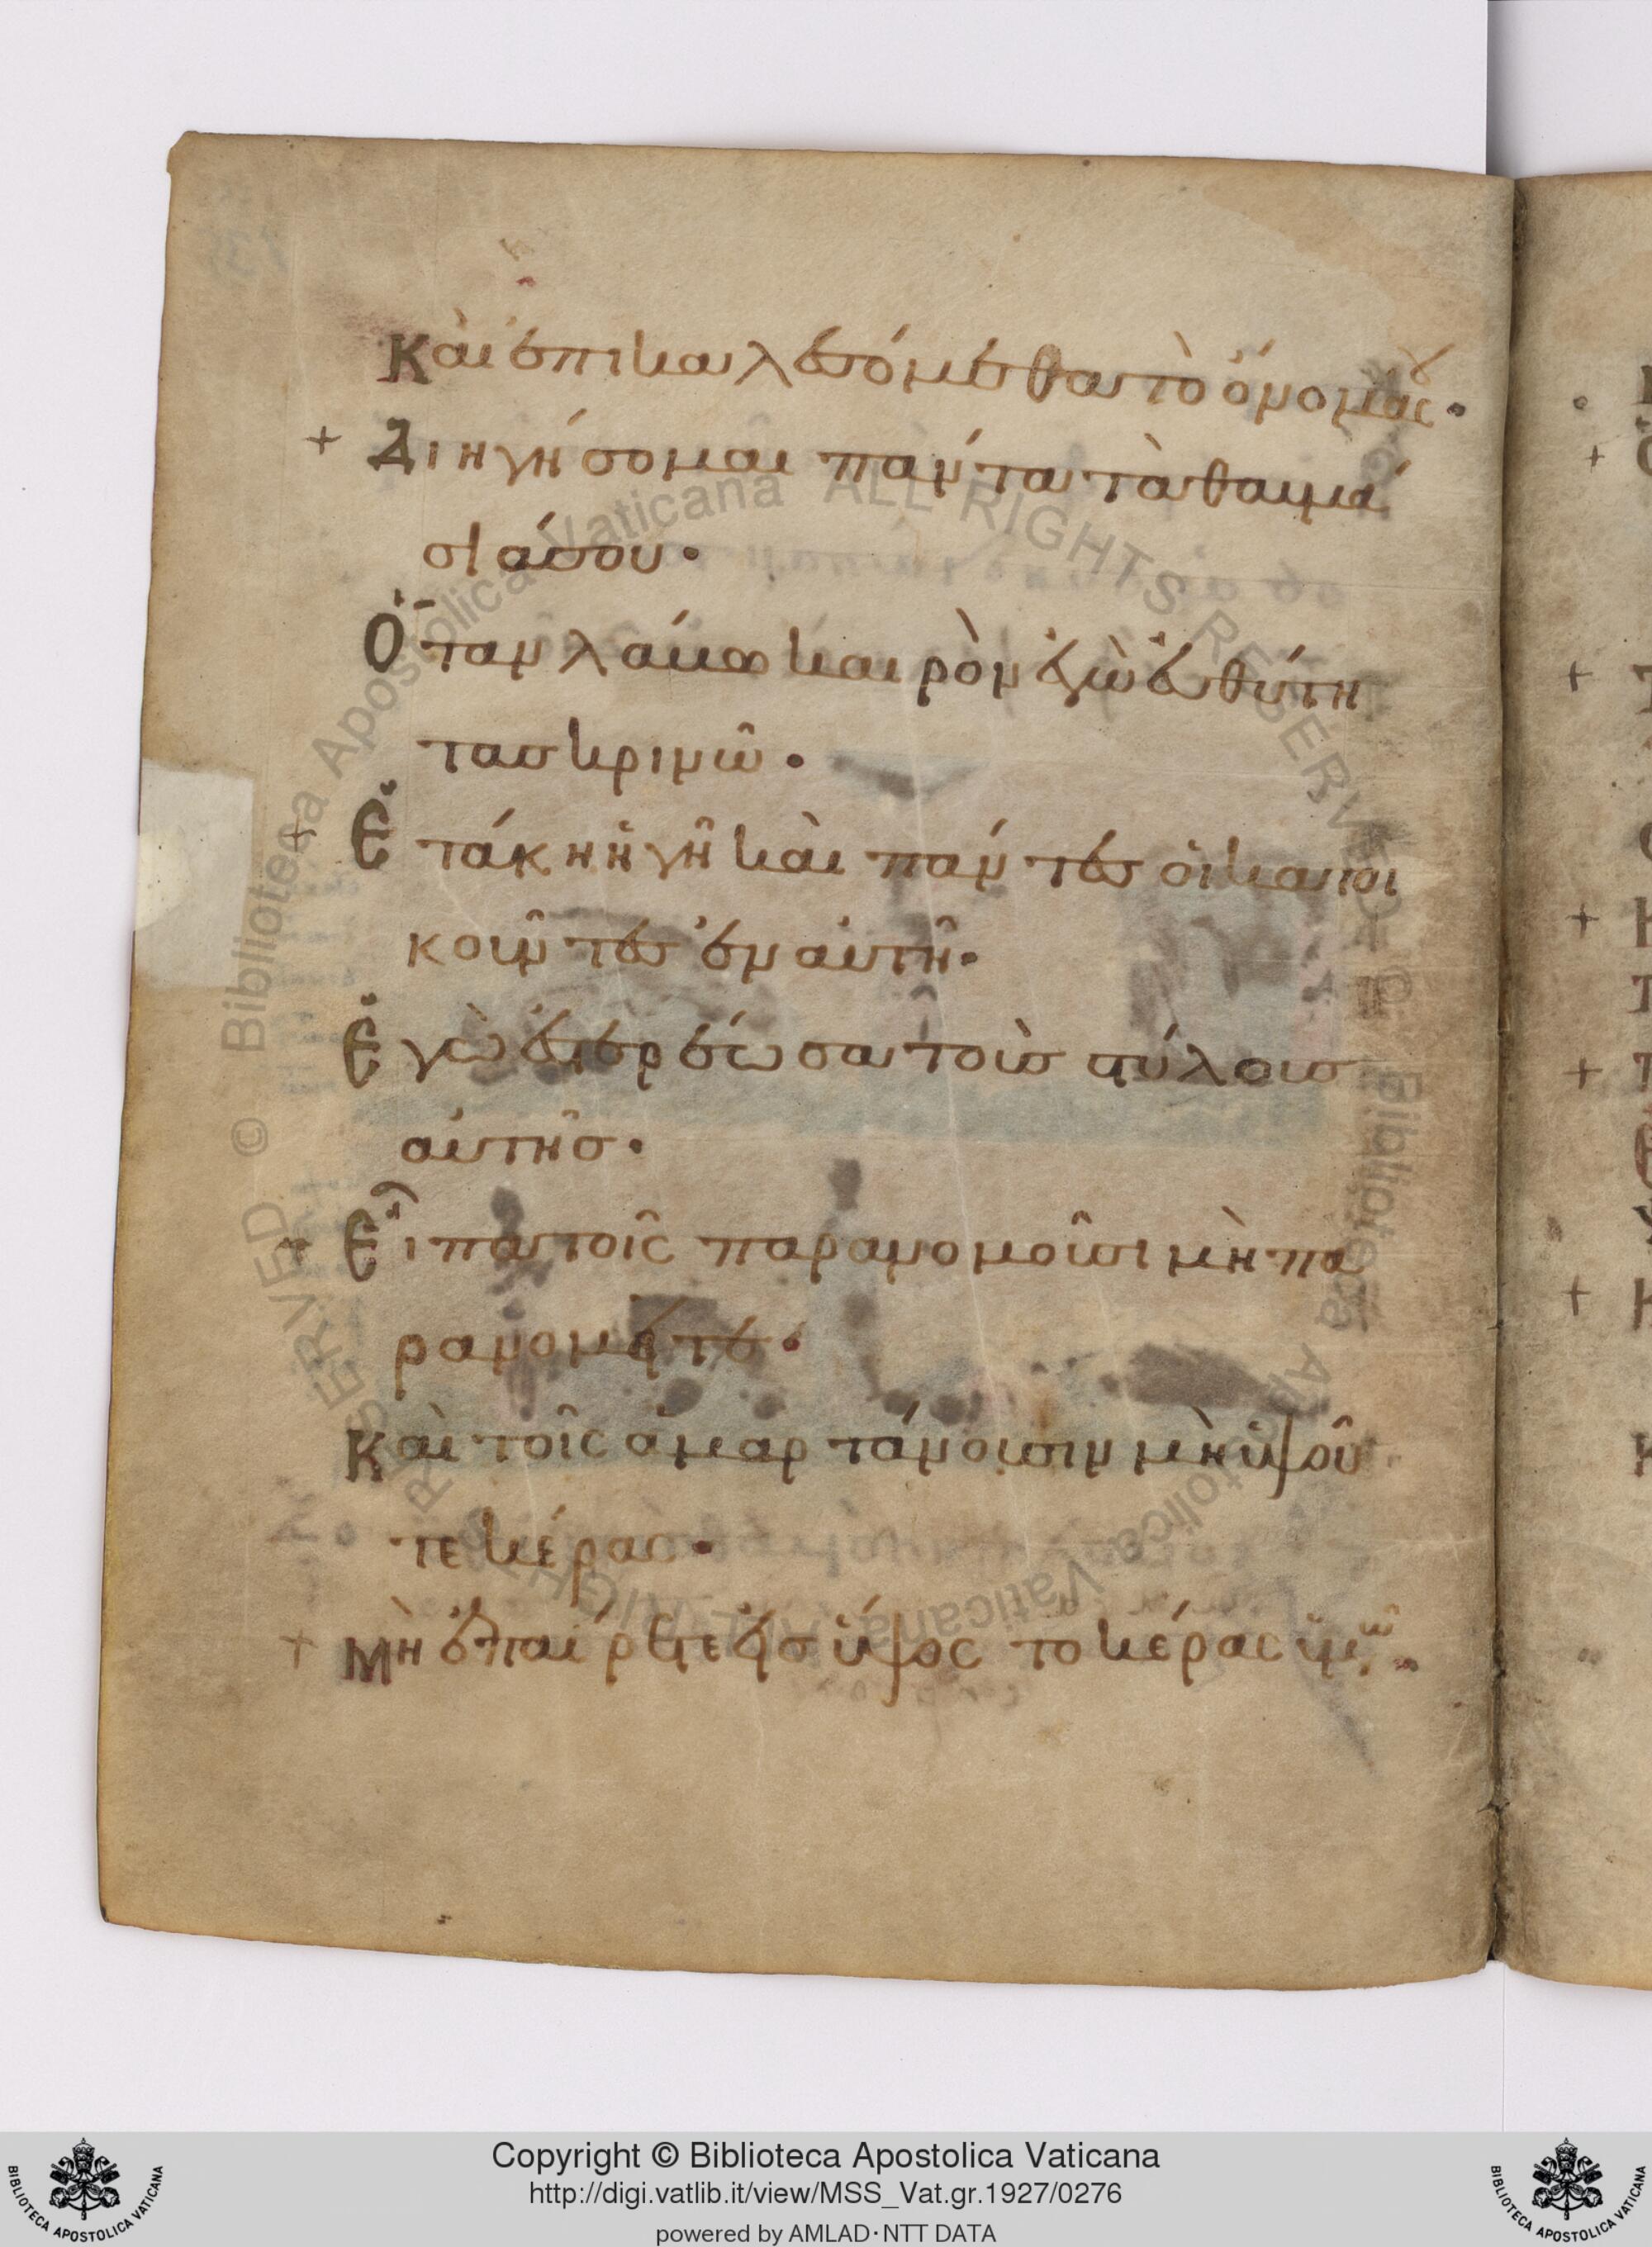 Καὶ ἐπικαλεσόμεθα τὸ ὄνομά σου·
+ Διηγήσομαι πάντα τὰ θαυμά
σιά σου·
Ὅταν λάβω καιρὸν ἐγὼ εὐθύτη
τας κρινῶ·
+ Ἐτάκη ἡ γῆ καὶ πάντες οἱ κατοι
κοῦντες ἐν αὐτῇ·
Ἐγὼ ἐστερέωσα τοὺς στύλους
αὐτῆς·
+ Εἶπα τοῖς παρανομοῦσι μὴ πα
ρανομεῖτε·
Καὶ τοῖς ἁμαρτάνουσιν μὴ ὑψοῦ
τε κέρας·
+ Μὴ ἐπαίρετε εἰς ὕψος το κέρας ὑμῶν·
Copyright © Biblioteca Apostolica Vaticana
http://digi.vatlib.it/view/MSS_Vat.gr.1927/0276
powered by AMLAD·NTT DATA
BIBLIOTECA APOSTOLICA VATICANA
BIBLIOTECA APOSTOLICA VATICANA
© Biblioteca Apostolica Vaticana ALL RIGHTS RESERVED
© Biblioteca Apostolica Vaticana ALL RIGHTS RESERVED